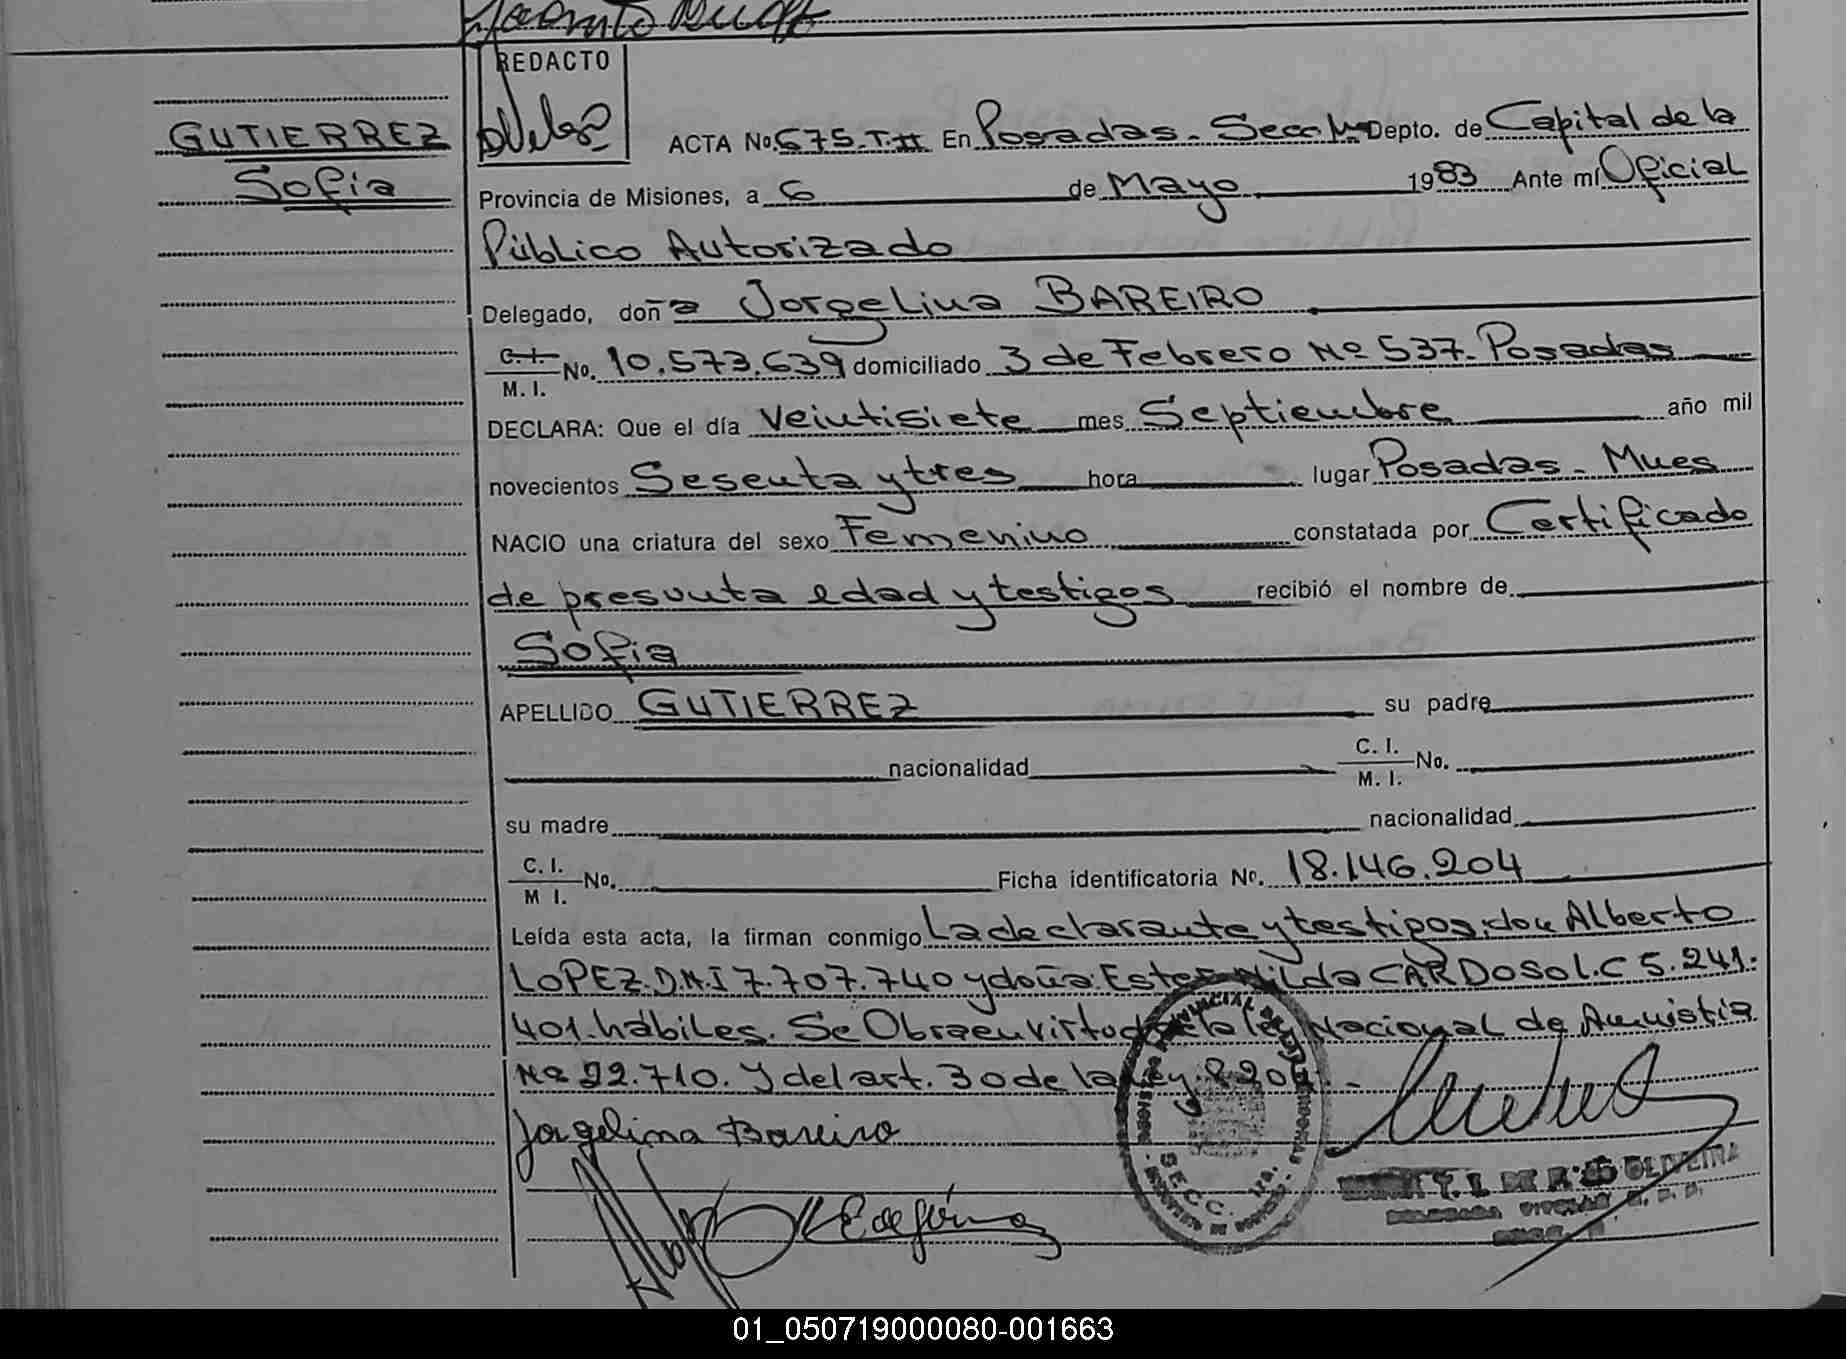 REDACTO
GUTIERREZ
Sofia
ACTA No. 675. T. II En Posadas - Secc 1ª Depto. de Capital de la
Provincia de Misiones, a 6 de Mayo 1983 Ante mí Oficial
Público Autorizado
Delegado, doña Jorgelina BAREIRO
C. I. / M. I. No. 10.573.639 domiciliado 3 de Febrero Nº 537. Posadas
DECLARA: Que el día Veintisiete mes Septiembre año mil
novecientos Sesenta y tres hora lugar Posadas - Mnes
NACIO una criatura del sexo Femenino constatada por Certificado
de presunta edad y testigos recibió el nombre de
Sofia
APELLIDO GUTIERREZ su padre
nacionalidad C. I. / M. I. No.
su madre nacionalidad
C. I. / M I. No. Ficha identificatoria No. 18.146.204
Leída esta acta, la firman conmigo La declarante y testigos, don Alberto
LOPEZ. D.N.I 7.707.740 y doña Ester Nilda CARDOSO L.C 5.241.
401. hábiles. Se Obra en virtud de la ley Nacional de Amnistia
Nº 22.710. Y del art. 30 de la ley
Jorgelina Bareiro
SECC. 1ra.
OLIVEIRA
01_050719000080-001663